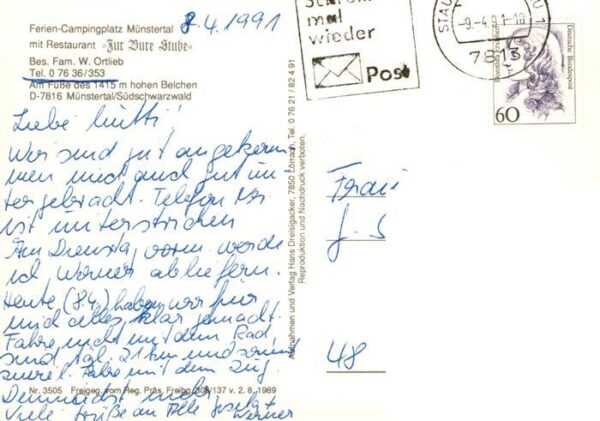 8.4.1991
Ferien-Campingplatz Münstertal
mit Restaurant »Zur Bure Stube«
Bes. Fam. W. Ortlieb
Tel. 0 76 36/353
Am Fuße des 1415 m hohen Belchen
D-7816 Münstertal/Südschwarzwald
Liebe Mutti!
Wir sind gut angekom
men und auch gut un
tergebracht. Telefon Nr
ist unterstrichen
Am Dienstag werde
ich Werner abliefern.
Heute (8.4.) haben wir für
mich alles klar gemacht.
Fahre nicht mit dem Rad,
sind tgl. 21 km und
zuviel. Fahre mit dem Zug.
Demnächst mehr
Viele Grüße an Alle
Werner
Nr. 3505 Freigeg. vom Reg. Präs. Freibg. 137 v. 2. 8. 1989
Aufnahmen und Verlag Hans Dreisigacker, 7850 Lörrach, Tel. 0 76 21 / 82 4 91
Reproduktion und Nachdruck verboten.
mal
wieder
Post
STAU
1
-9.-4.91-18
7813
Deutsche Bundespost
60
Frau
J. S
48